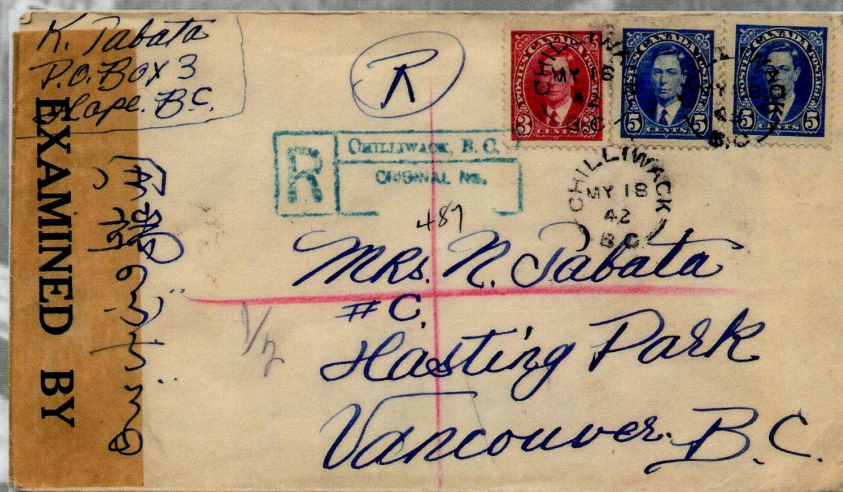 K. Tabata
P.O. Box 3
Hope. B.C.
EXAMINED BY
R
R
CHILLIWACK, B. C.
ORIGINAL No.
487
3 CENTS 3
POSTES CANADA POSTAGE
5 CENTS 5
POSTES CANADA POSTAGE
5 CENTS 5
CHILLIWACK
MY 18
42
B.C.
Mrs. N. Tabata
#C.
Hasting Park
Vancouver. B.C.
1/2